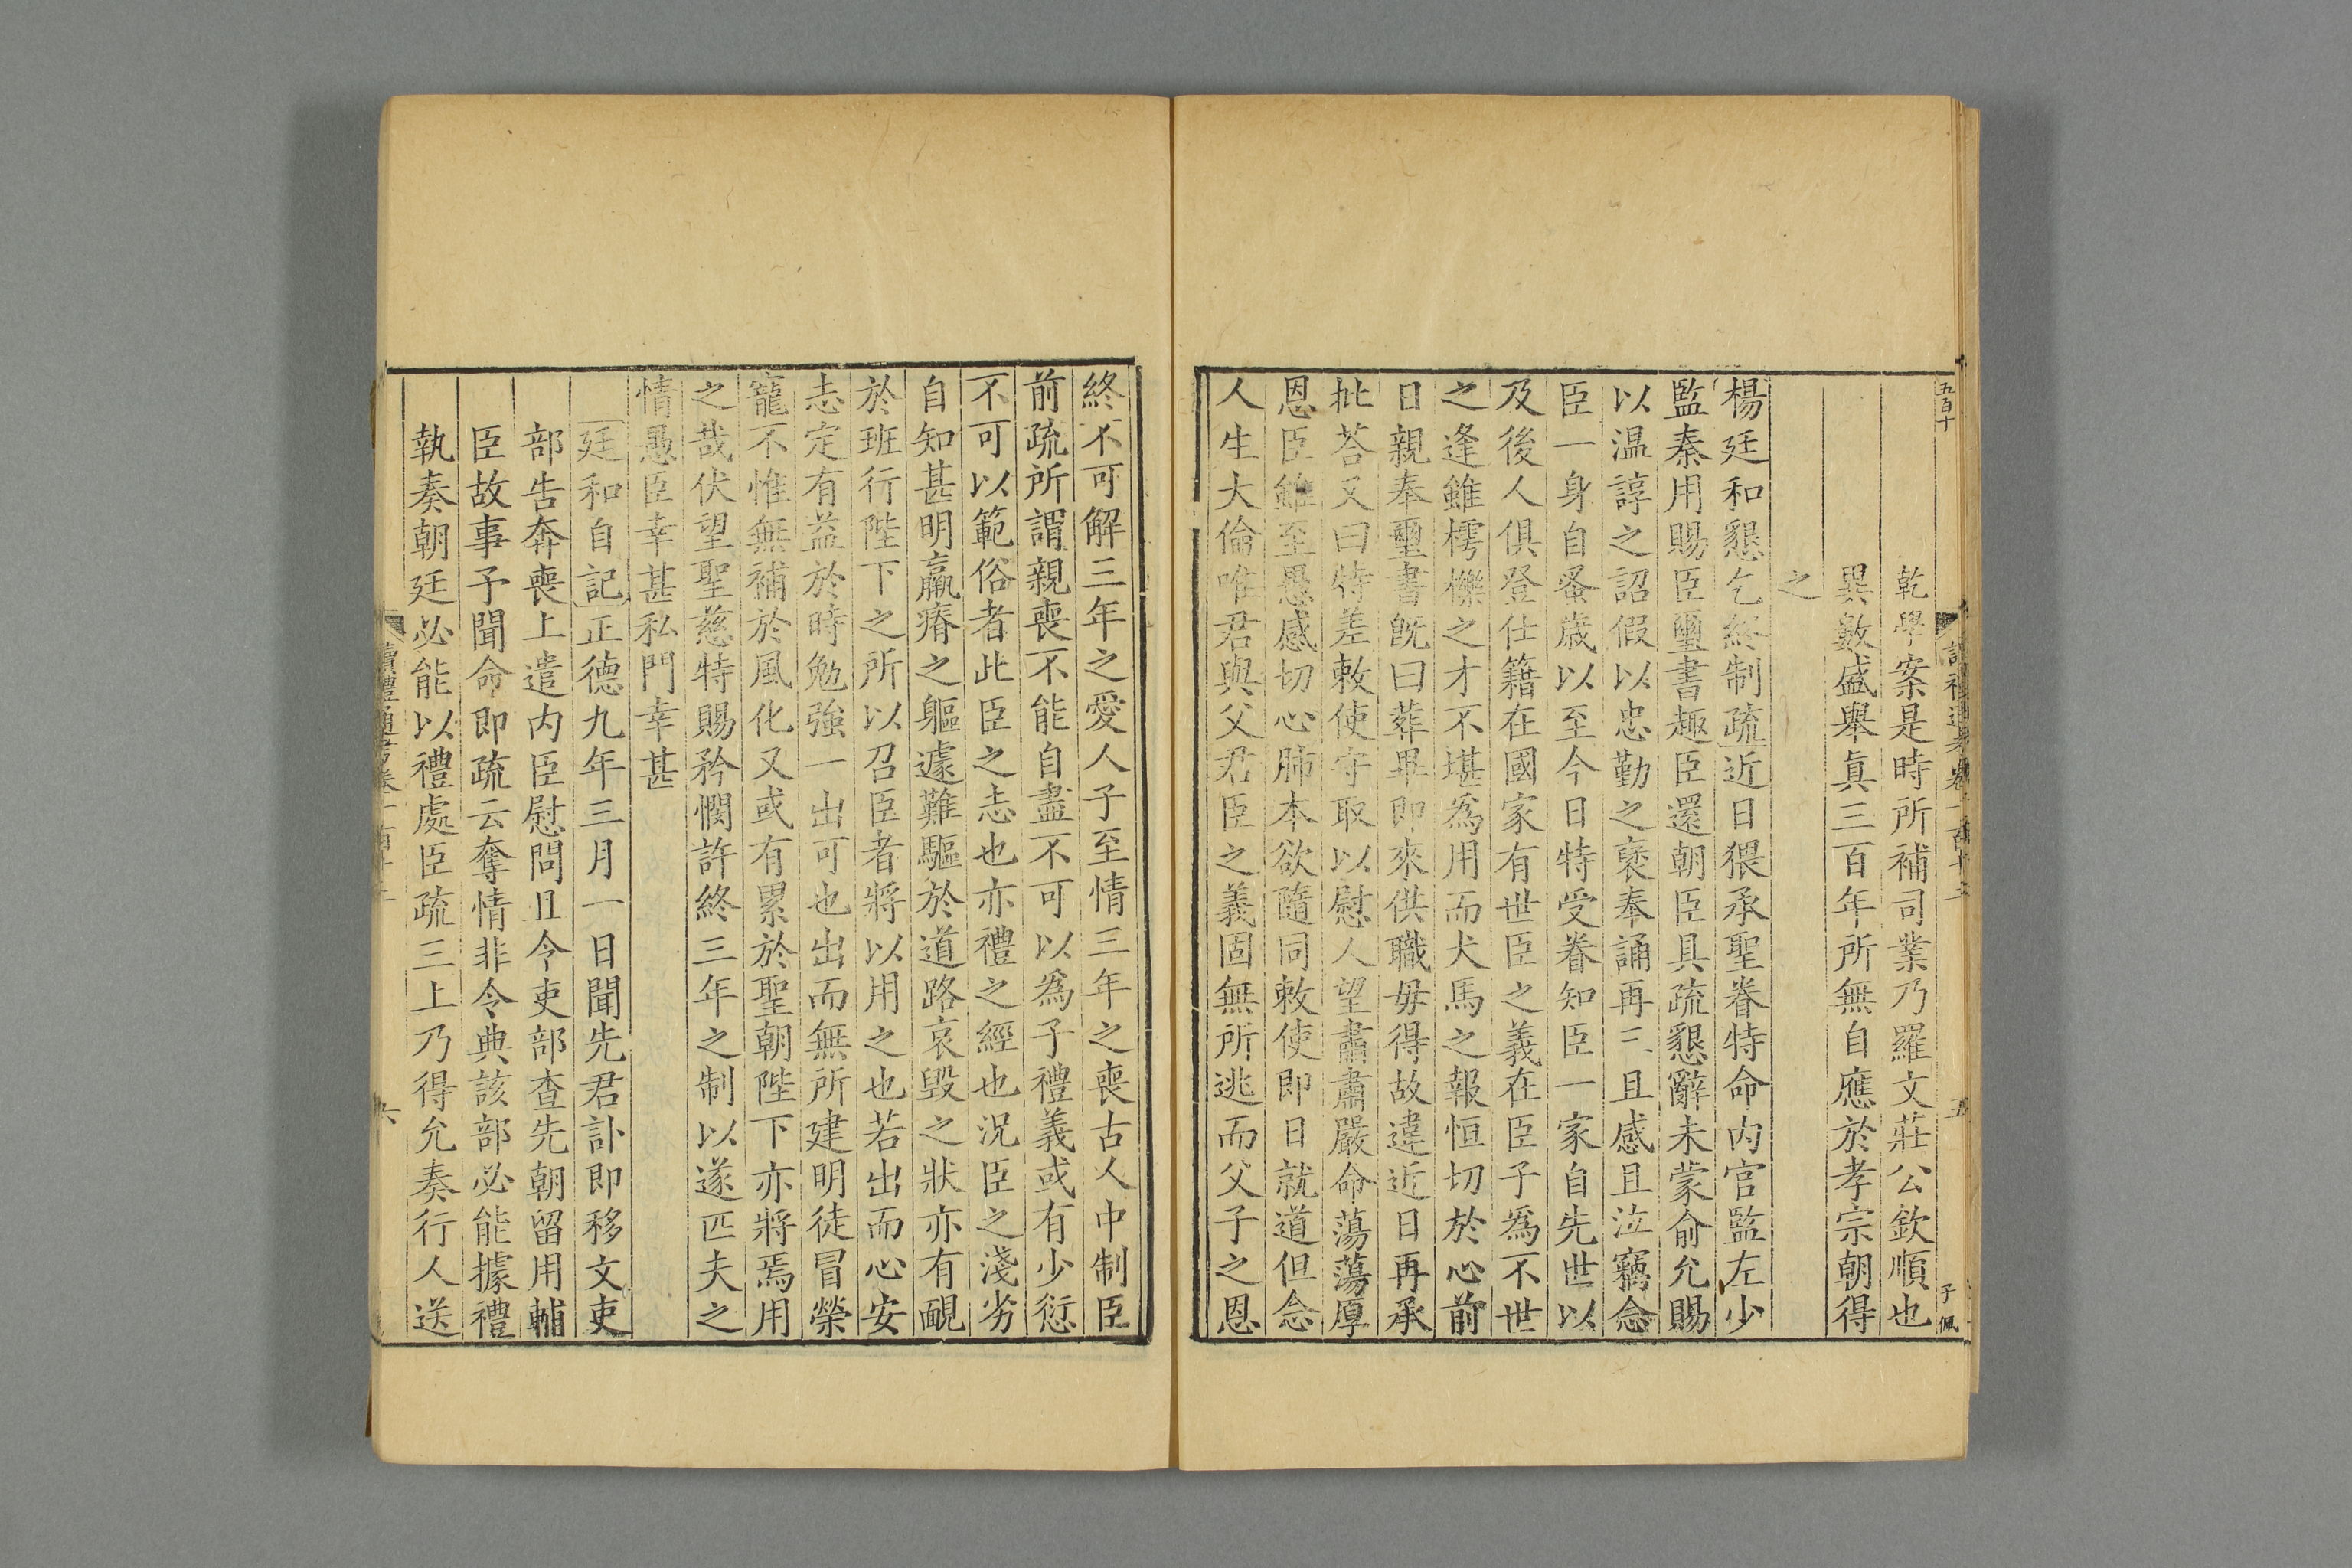 五百十
讀禮通考卷一百十二
五
子佩
乾學案是時所補司業乃羅文莊公欽順也
異數盛舉真三百年所無自應於孝宗朝得
之
楊廷和懇乞終制疏近日猥承聖眷特命内官監左少
監秦用賜臣璽書趣臣還朝臣具疏懇辭未蒙俞允賜
以温諄之詔假以忠勤之襃奉誦再三且感且泣竊念
臣一身自蚤歲以至今日特受眷知臣一家自先世以
及後人俱登仕籍在國家有世臣之義在臣子爲不世
之逢雖樗櫟之才不堪爲用而犬馬之報恒切於心前
日親奉璽書既曰葬畢即來供職毋得故違近日再承
批荅又曰特差敕使守取以慰人望肅肅嚴命蕩蕩厚
恩臣雖至愚感切心肺本欲隨同敕使即日就道但念
人生大倫唯君與父君臣之義固無所逃而父子之恩
終不可解三年之愛人子至情三年之喪古人中制臣
前疏所謂親喪不能自盡不可以爲子禮義或有少愆
不可以範俗者此臣之志也亦禮之經也況臣之淺劣
自知甚明羸瘠之軀遽難驅於道路哀毀之狀亦有靦
於班行陛下之所以召臣者將以用之也若出而心安
志定有益於時勉強一出可也出而無所建明徒冒榮
寵不惟無補於風化又或有累於聖朝陛下亦將焉用
之哉伏望聖慈特賜矜憫許終三年之制以遂匹夫之
情愚臣幸甚私門幸甚
廷和自記正德九年三月一日聞先君訃即移文吏
部告奔喪上遣内臣慰問且令吏部查先朝留用輔
臣故事予聞命即疏云奪情非令典該部必能據禮
執奏朝廷必能以禮處臣疏三上乃得允奏行人送
讀禮通考卷一百十二
六